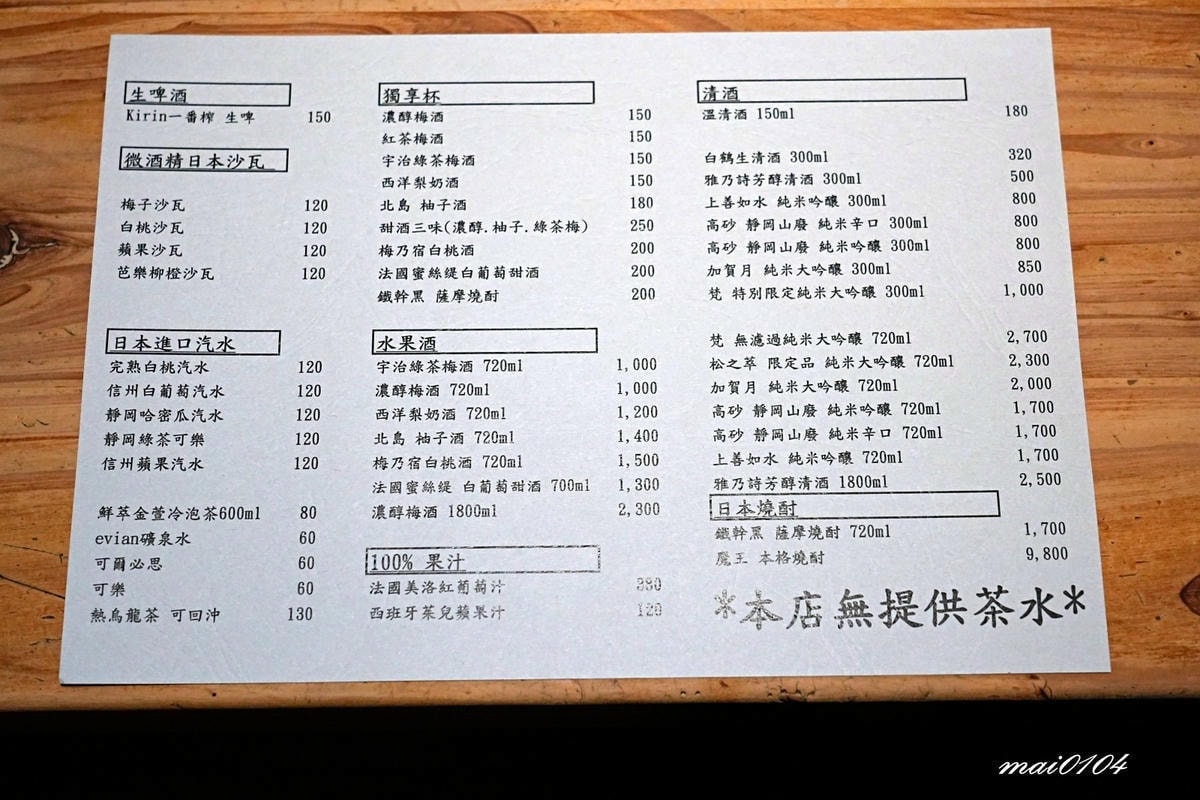 生啤酒
Kirin一番榨 生啤 150
微酒精日本沙瓦
梅子沙瓦 120
白桃沙瓦 120
蘋果沙瓦 120
芭樂柳橙沙瓦 120
日本進口汽水
完熟白桃汽水 120
信州白葡萄汽水 120
靜岡哈密瓜汽水 120
靜岡綠茶可樂 120
信州蘋果汽水 120
鮮萃金萱冷泡茶600ml 80
evian礦泉水 60
可爾必思 60
可樂 60
熱烏龍茶 可回沖 130
獨享杯
濃醇梅酒 150
紅茶梅酒 150
宇治綠茶梅酒 150
西洋梨奶酒 150
北島 柚子酒 180
甜酒三味(濃醇.柚子.綠茶梅) 250
梅乃宿白桃酒 200
法國蜜絲緹白葡萄甜酒 200
鐵幹黑 薩摩燒酎 200
水果酒
宇治綠茶梅酒 720ml 1,000
濃醇梅酒 720ml 1,000
西洋梨奶酒 720ml 1,200
北島 柚子酒 720ml 1,400
梅乃宿白桃酒 720ml 1,500
法國蜜絲緹 白葡萄甜酒 700ml 1,300
濃醇梅酒 1800ml 2,300
100% 果汁
法國美洛紅葡萄汁 380
西班牙萊兒蘋果汁 120
清酒
溫清酒 150ml 180
白鶴生清酒 300ml 320
雅乃詩芳醇清酒 300ml 500
上善如水 純米吟釀 300ml 800
高砂 靜岡山廢 純米辛口 300ml 800
高砂 靜岡山廢 純米吟釀 300ml 800
加賀月 純米大吟釀 300ml 850
梵 特別限定純米大吟釀 300ml 1,000
梵 無濾過純米大吟釀 720ml 2,700
松之萃 限定品 純米大吟釀 720ml 2,300
加賀月 純米大吟釀 720ml 2,000
高砂 靜岡山廢 純米吟釀 720ml 1,700
高砂 靜岡山廢 純米辛口 720ml 1,700
上善如水 純米吟釀 720ml 1,700
雅乃詩芳醇清酒 1800ml 2,500
日本燒酎
鐵幹黑 薩摩燒酎 720ml 1,700
魔王 本格燒酎 9,800
*本店無提供茶水*
mai0104